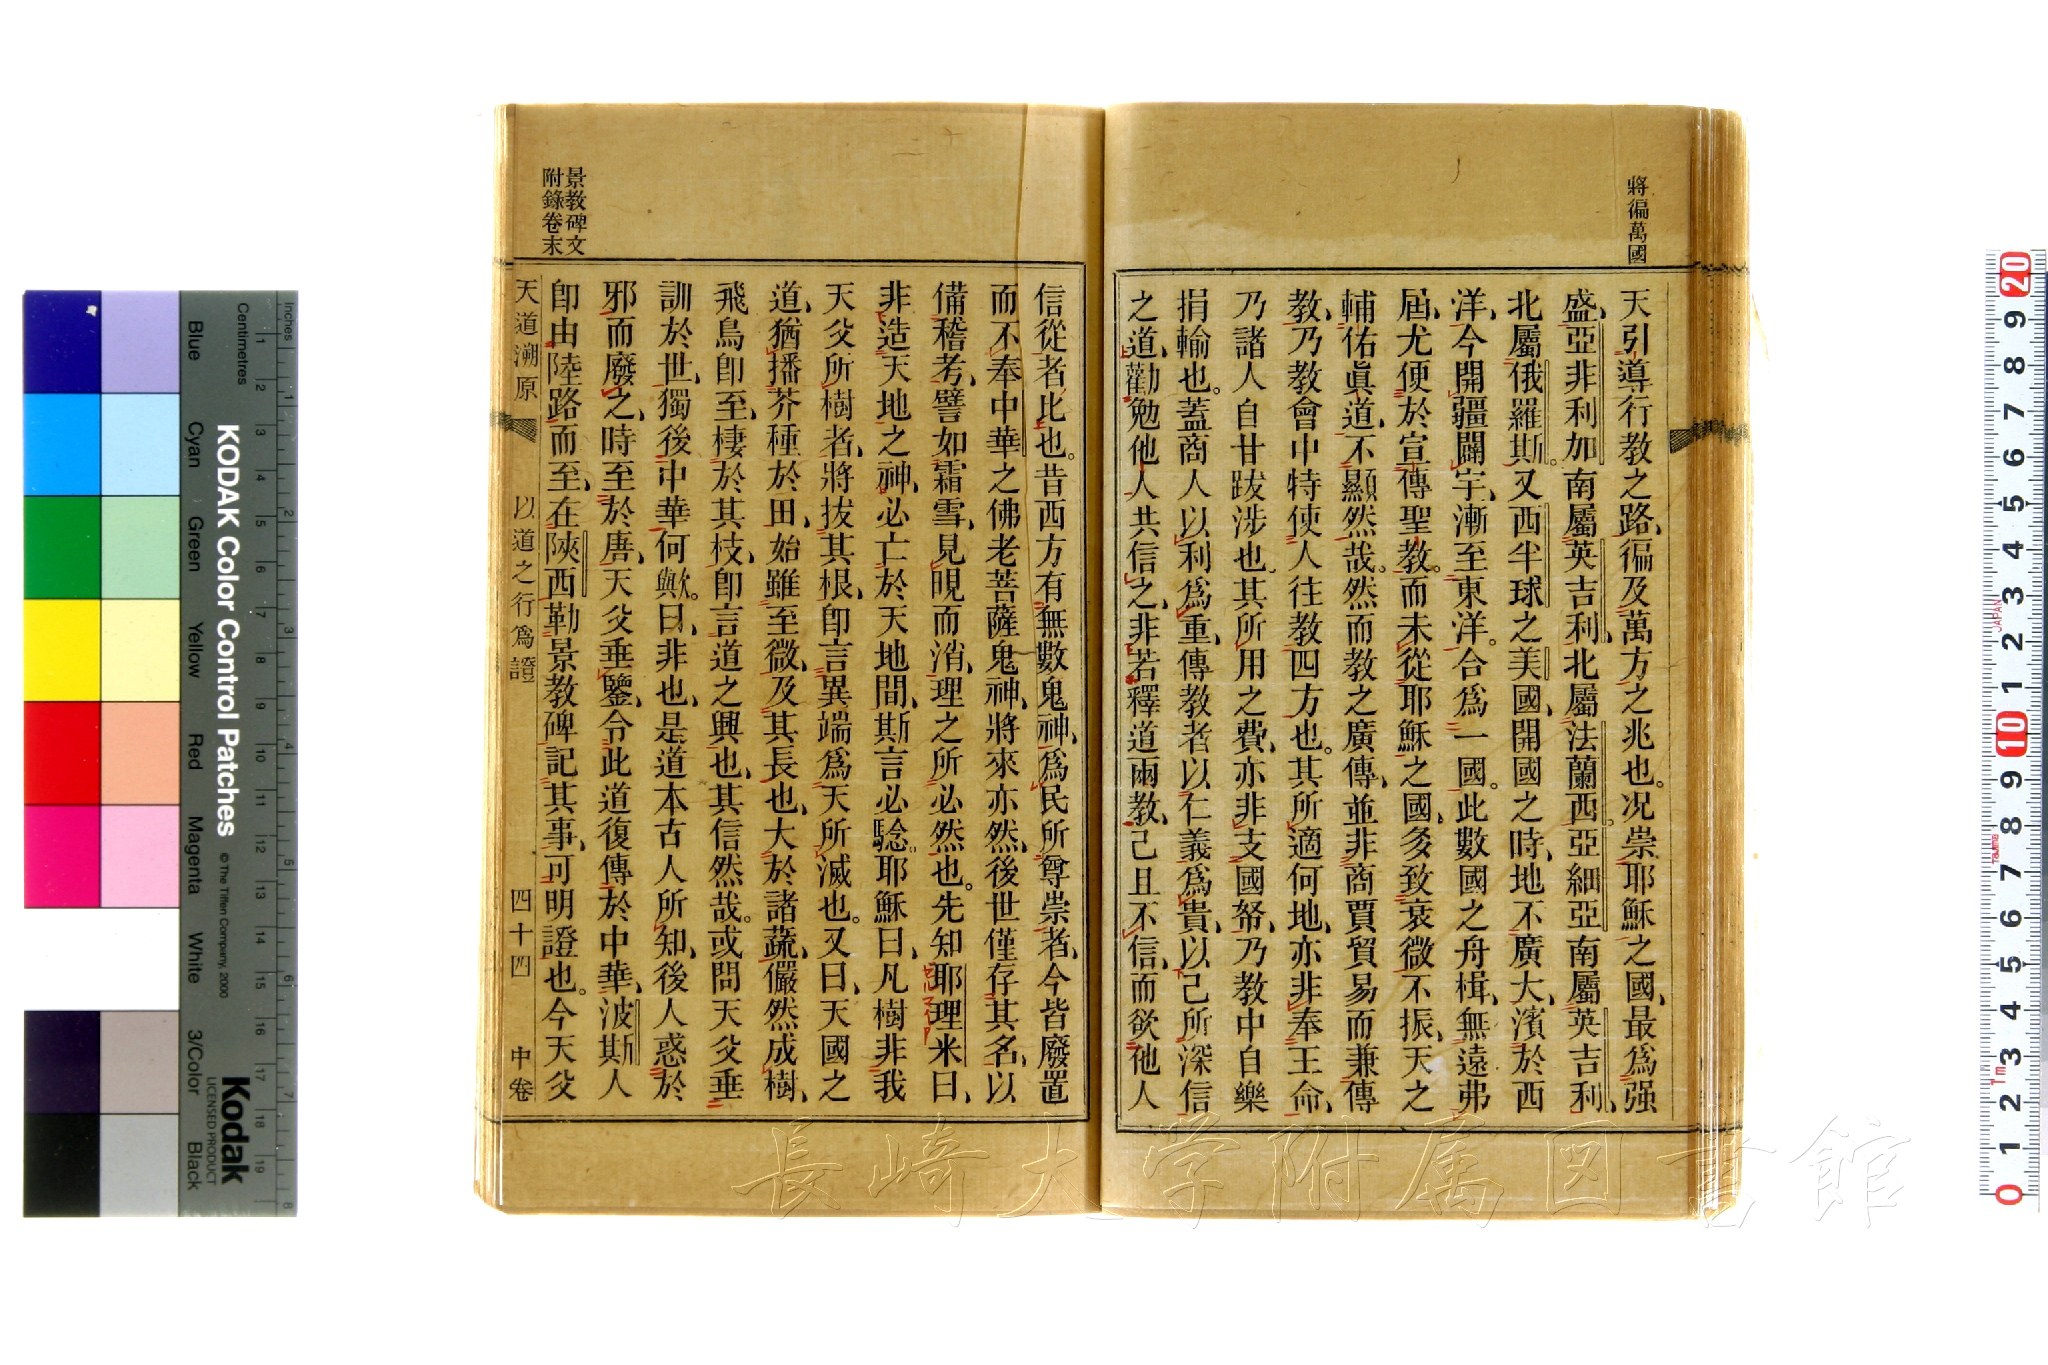 將徧萬國
天引導行教之路、徧及萬方之兆也。况崇耶穌之國、最爲强
盛、亞非利加南屬英吉利、北屬法蘭西。亞細亞南屬英吉利、
北屬俄羅斯。又西半球之美國、開國之時、地不廣大、濱於西
洋、今開疆闢宇、漸至東洋。合爲一國。此數國之舟楫、無遠弗
屆、尤便於宣傳聖教。而未從耶穌之國、多致衰微不振、天之
輔佑眞道、不顯然哉。然而教之廣傳、並非商賈貿易而兼傳
教、乃教會中特使人往教四方也。其所適何地、亦非奉王命、
乃諸人自甘跋涉也。其所用之費、亦非支國帑、乃教中自樂
捐輸也。蓋商人以利爲重、傳教者以仁義爲貴、以己所深信
之道、勸勉他人共信之、非若釋道兩教、己且不信、而欲他人
信從者比也。昔西方有無數鬼神、爲民所尊崇者、今皆廢置
而不奉中華之佛老菩薩鬼神、將來亦然、後世僅存其名、以
備稽考、譬如霜雪、見晛而消、理之所必然也。先知耶理米曰、
非造天地之神、必亡於天地間、斯言必騐。耶穌曰、凡樹非我
天父所樹者、將拔其根、卽言異端爲天所滅也。又曰、天國之
道、猶播芥種於田、始雖至微、及其長也、大於諸蔬、儼然成樹、
飛鳥卽至、棲於其枝、卽言道之興也、其信然哉。或問天父垂
訓於世、獨後中華何歟。曰、非也、是道本古人所知、後人惑於
邪而廢之、時至於唐、天父垂鑒、令此道復傳於中華、波斯人
卽由陸路而至、在陝西勒景教碑記其事、可明證也。今天父
景教碑文
附錄卷末
天道溯原 以道之行爲證 四十四 中卷
長崎大学附属図書館
KODAK Color Control Patches
©The Tiffen Company, 2000
Kodak
LICENSED PRODUCT
Inches
Centimetres
Blue
Cyan
Green
Yellow
Red
Magenta
White
3/Color
Black
JAPAN